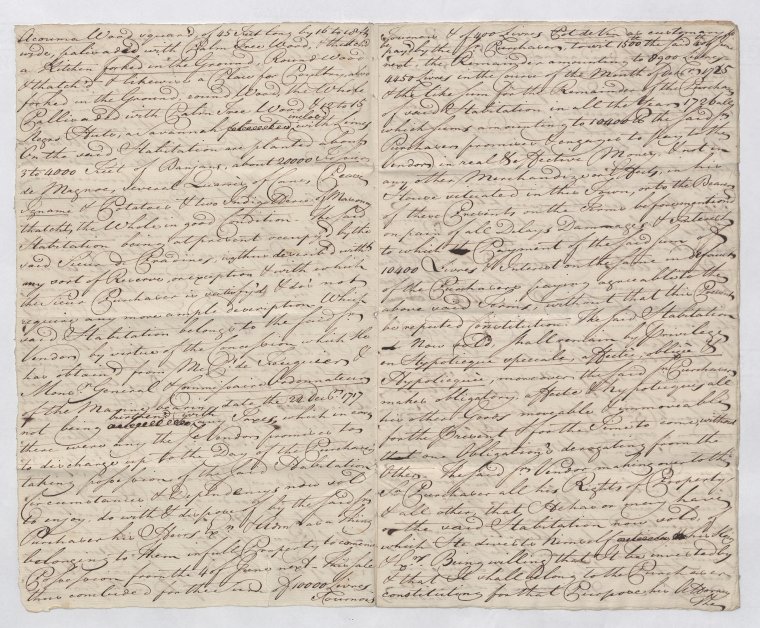 Acouma Wood squared, of 45 Feet long by 16 to 18 ft
wide, palisaded with Palm Tree Wood, & thatch'd
a Kitchen forked in the Ground, Round Wood
& thatch'd & likewise a Place for Poultry also
forked in the Ground, round Wood the Whole
Pallisaded with Palm Tree Wood & 12 to 15
Negro Huts, a Savannah inclosed with Limes
On the said Habitation are planted about
3 to 4000 Feet of Bananas, about 20000
de Magnoc, several Quarrees of Canes,
Igname & Potatoes & two Indig
thatch'd, the Whole in good Condition. The said
Habitation being at present occupied by the
said Sieur de Pradines, rather devested with
any sort of Reserve or exception & with which
the Sieur Purchaser is satisfy'd & does not
require any more ample description. Which
said Habitation belongs to the said Sr.
Vendor, by virtue of the Concession which He
has obtained from Mr. de &
Mons. General & Commissaire Ordonnateur
of the Marine bearing date the 22 Decr. 1717
not being any Taxes, which in any
these were any the Vendor promises
to discharge up to the Day of the Purchaser
taking possession of the said Habitation
Circumstances & Dependencys now sold
to enjoy, do with & dispose of by the said Sr.
Purchaser his Heirs as a thing
belonging to them in full Property to commence
Possession from the 4 of June next. This sale
thus concluded for the Sum of 10000 Livres
Tournois
Tournois & of 400 Livres Pot de Vin as customary to
pay by the Sr. Purchaser, to wit 1500 the said 4 of June
next, the Remainder amounting to 8900 Livres
4450 Livres in the course of the Month of 1725
& the like Sum for the Remainder of the Purchase
of said Habitation in all the Year 1726 all
which sums amounting to 10400 the said Sr.
Purchaser promises & engages to pay to the
Vendor in real & effective Money, & not in
any other Merchandize or Effects, in his
House situated in this Town, or to the Bearer
of these Presents on the Terms beforementioned
on pain of all Delays Dammages & Interest
to which the Payment of the said Sum of
10400 Livres & Interest on the same in default
of the Purchasers paying agreeable to the
above said Terms, without that this Present
be reputed Constitution. The said Habitation
now sold shall certain of Priviledge
en Hypoteque speciale affecté, obligé &
Hypotiequée, moreover the said Sr. Purchaser
makes obligatory affecté & hypotiequés all
his other Goods moveable & immoveable
for the Present & for the Time to come, without
that one Obligation's derogating from the
other. The said Sr. Vendor making over to the
Sr. Purchaser all his Rights of Property
& all other, that He has or may have
on the said Habitation now sold,
which He divests himself of
Being willing that He be invested by
& that it shall belong to the Purchaser
constituting for that Purpose his Attorney
The